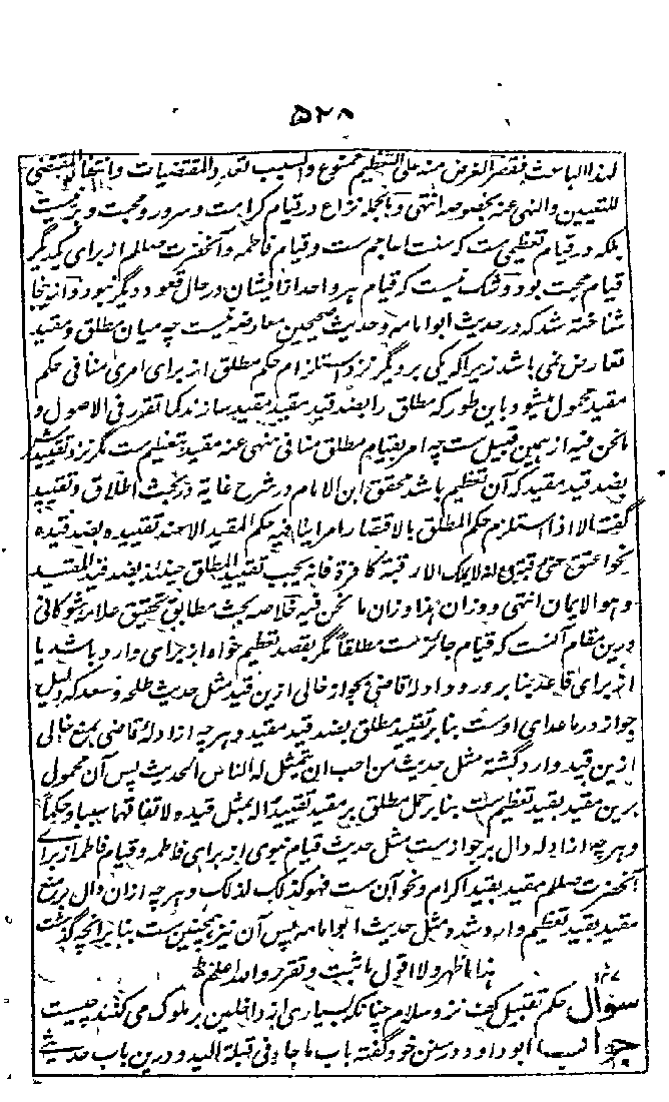 ۵۲۸
لهذا الباعث فقصر الغرض منه على التعظيم ممنوع والسبب لتعدد المقتضيات وانتفاء المقتضى
للتعيين والنهى عنه بخصوصه انتهى وبالجمله نزاع در قيام كرامت وسرور ومحبت وبر نيست
بلكه در قيام تعظيمى ست كه سنت اعاجم ست وقيام فاطمه وآنحضرت صللم از براى يكديگر
قيام محبت بود وشك نيست كه قيام هر واحد ازايشان در حال قعود ديگر نبود وازينجا
شناخته شد كه در حديث ابو امامه وحديث صحيحين معارضه نيست چه ميان مطلق ومقيد
تعارض نمى باشد زيرا كه يكى بر ديگر نزد استلزام حكم مطلق از براى امرى منافى حكم
مقيد محمول ميشود باين طور كه مطلق را بضد قيد مقيد مقيد سازند كما تقرر فى الاصول و
ما نحن فيه ازهمين قبيل ست چه امر بقيام مطلق منافى منهى عنه مقيد بتعظيم ست مگر نزد تقييدش
بضد قيد مقيد كه آن تعظيم باشد محقق ابن الامام در شرح غايه در بحث اطلاق وتقييد
گفته الا اذا استلزم حكم المطلق بالاقتضاء امرا ينافيه حكم المقيد الا عند تقييده بضد قيده
نحو اعتق عنى رقبة مع لا تملك الا رقبة كافرة فانه يجب تقييد المطلق حينئذ بضد قيد المقيد
وهو الايمان انتهى ووزان هذا وزان ما نحن فيه خلاصه بحث مطابق تحقيق علامه شوكانى
درين مقام آنست كه قيام جائز ست مطلقاً مگر بقصد تعظيم خواه از براى وارد باشد يا
از براى قاعد بنا بر ورود ادله قاضى بجواز خالى ازين قيد مثل حديث طلحه وسعد كه دليل
جواز در ما عداى اوست بنا بر تقييد مطلق بضد قيد مقيد وهر چه از ادلهٔ قاضى بمنع خالى
ازين قيد وارد گشته مثل حديث من احب ان يتمثل له الناس الحديث پس آن محمول
برين مقيد بقيد تعظيم ست بنا بر حمل مطلق بر مقيد تقييدا له بمثل قيده لاتفاقهما سببا وحكما
وهر چه از ادله دال بر جواز ست مثل حديث قيام نبوى از براى فاطمه وقيام فاطمه از براى
آنحضرت صللم مقيد بقيد اكرام ونحو آن ست فهو كذلك لذلك وهر چه ازان دال بر منع
مقيد بقيد تعظيم وارد شده مثل حديث ابو امامه پس آن نيز همچنين ست بنا بر انچه گذشت
هذا ما ظهر ولا اقول ما ثبت وتقرر والله اعلم
سوال حكم تقبيل كف نزد سلام چنانكه بسيارى از داخلين بر ملوك مى كنند چيست
جواب ابو داود در سنن خود گفته باب ما جاء فى قبلة اليد ودرين باب حديثى